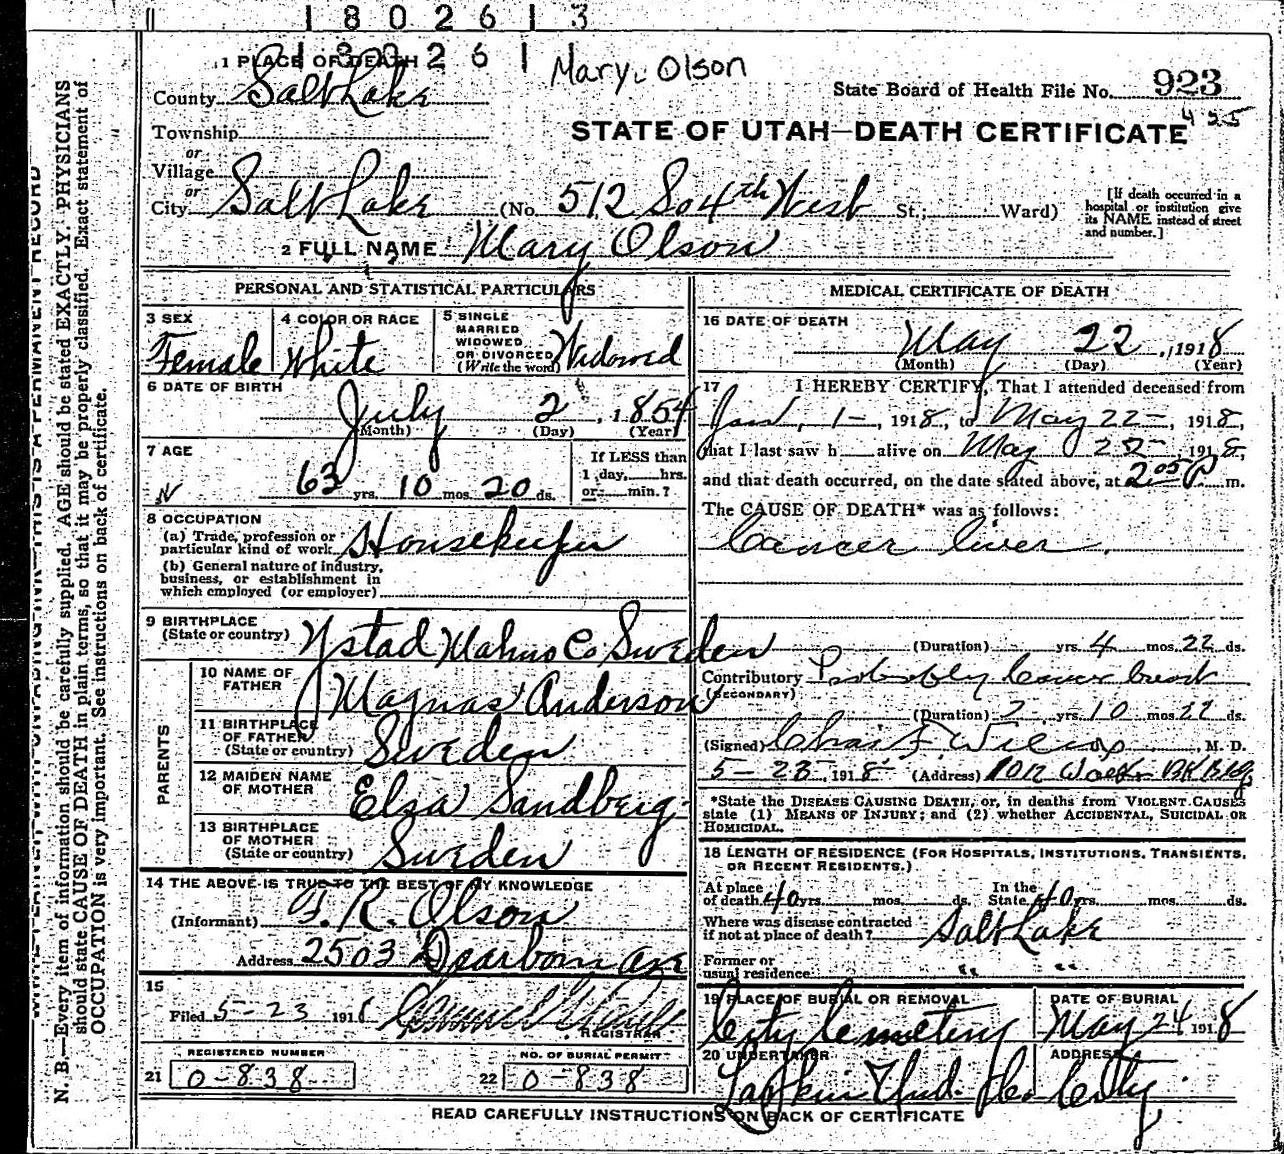 1802613
180261
Mary Olson
1 PLACE OF DEATH
County Salt Lake
State Board of Health File No. 923
425
Township
STATE OF UTAH—DEATH CERTIFICATE
or
Village
or
City Salt Lake (No. 512 So 4th West St.; Ward)
[If death occurred in a hospital or institution give its NAME instead of street and number.]
2 FULL NAME Mary Olson
PERSONAL AND STATISTICAL PARTICULARS
3 SEX Female
4 COLOR OR RACE White
5 SINGLE MARRIED WIDOWED OR DIVORCED (Write the word) Widowed
6 DATE OF BIRTH
July 2, 1854
(Month) (Day) (Year)
7 AGE
63 yrs. 10 mos. 20 ds.
If LESS than
1 day, hrs.
or min.?
8 OCCUPATION
(a) Trade, profession or
particular kind of work Housekeeper
(b) General nature of industry,
business, or establishment in
which employed (or employer)
9 BIRTHPLACE
(State or country) Ystad Co Sweden
PARENTS
10 NAME OF
FATHER Magnas Anderson
11 BIRTHPLACE
OF FATHER
(State or country) Sweden
12 MAIDEN NAME
OF MOTHER Elsa Sandberg
13 BIRTHPLACE
OF MOTHER
(State or country) Sweden
14 THE ABOVE IS TRUE TO THE BEST OF MY KNOWLEDGE
(Informant) R. Olson
Address 2503 Dearborn ave
15
Filed 5-23 1918
REGISTRAR
REGISTERED NUMBER
21 0-838
NO. OF BURIAL PERMIT
22 0-838
MEDICAL CERTIFICATE OF DEATH
16 DATE OF DEATH
May 22, 1918
(Month) (Day) (Year)
17 I HEREBY CERTIFY, That I attended deceased from
Jan, 1-, 1918, to May 22-, 1918,
that I last saw h alive on May 22- 1918,
and that death occurred, on the date stated above, at 2 05 P. m.
The CAUSE OF DEATH* was as follows:
Cancer liver.
(Duration) yrs. 4 mos. 22 ds.
Contributory Probably Cancer breast
(SECONDARY)
(Duration) 2 yrs. 10 mos. 22 ds.
(Signed) Chas F Wilcox, M. D.
5-23, 1918 (Address) Walker BK Bldg
*State the DISEASE CAUSING DEATH, or, in deaths from VIOLENT CAUSES
state (1) MEANS OF INJURY; and (2) whether ACCIDENTAL, SUICIDAL OR
HOMICIDAL.
18 LENGTH OF RESIDENCE (FOR HOSPITALS, INSTITUTIONS, TRANSIENTS,
OR RECENT RESIDENTS.)
At place of death 40 yrs. mos. ds. In the State 40 yrs. mos. ds.
Where was disease contracted
if not at place of death? Salt Lake
Former or
usual residence " "
19 PLACE OF BURIAL OR REMOVAL City Cemetery
DATE OF BURIAL May 24 1918
20 UNDERTAKER Und. Co.
ADDRESS City
READ CAREFULLY INSTRUCTIONS ON BACK OF CERTIFICATE
N. B.—Every item of information should be carefully supplied. AGE should be stated EXACTLY. PHYSICIANS
should state CAUSE OF DEATH in plain terms, so that it may be properly classified. Exact statement of
OCCUPATION is very important. See instructions on back of certificate.